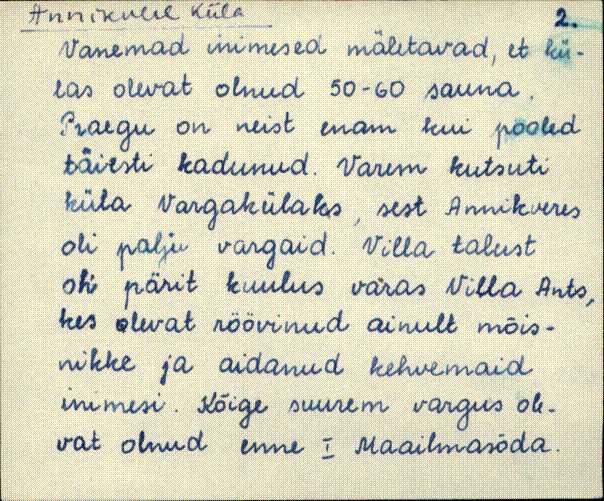 Annikvere Küla
2.
Vanemad inimesed mäletavad, et kü-
las olevat olnud 50-60 sauna.
Praegu on neist enam kui pooled
täiesti kadunud. Varem kutsuti
küla Vargakülaks, sest Annikveres
oli palju vargaid. Villa talust
oli pärit kuulus varas Villa Ants,
kes olevat röövinud ainult mõis-
nikke ja aidanud kehvemaid
inimesi. Kõige suurem vargus ole-
vat olnud enne I Maailmasõda.